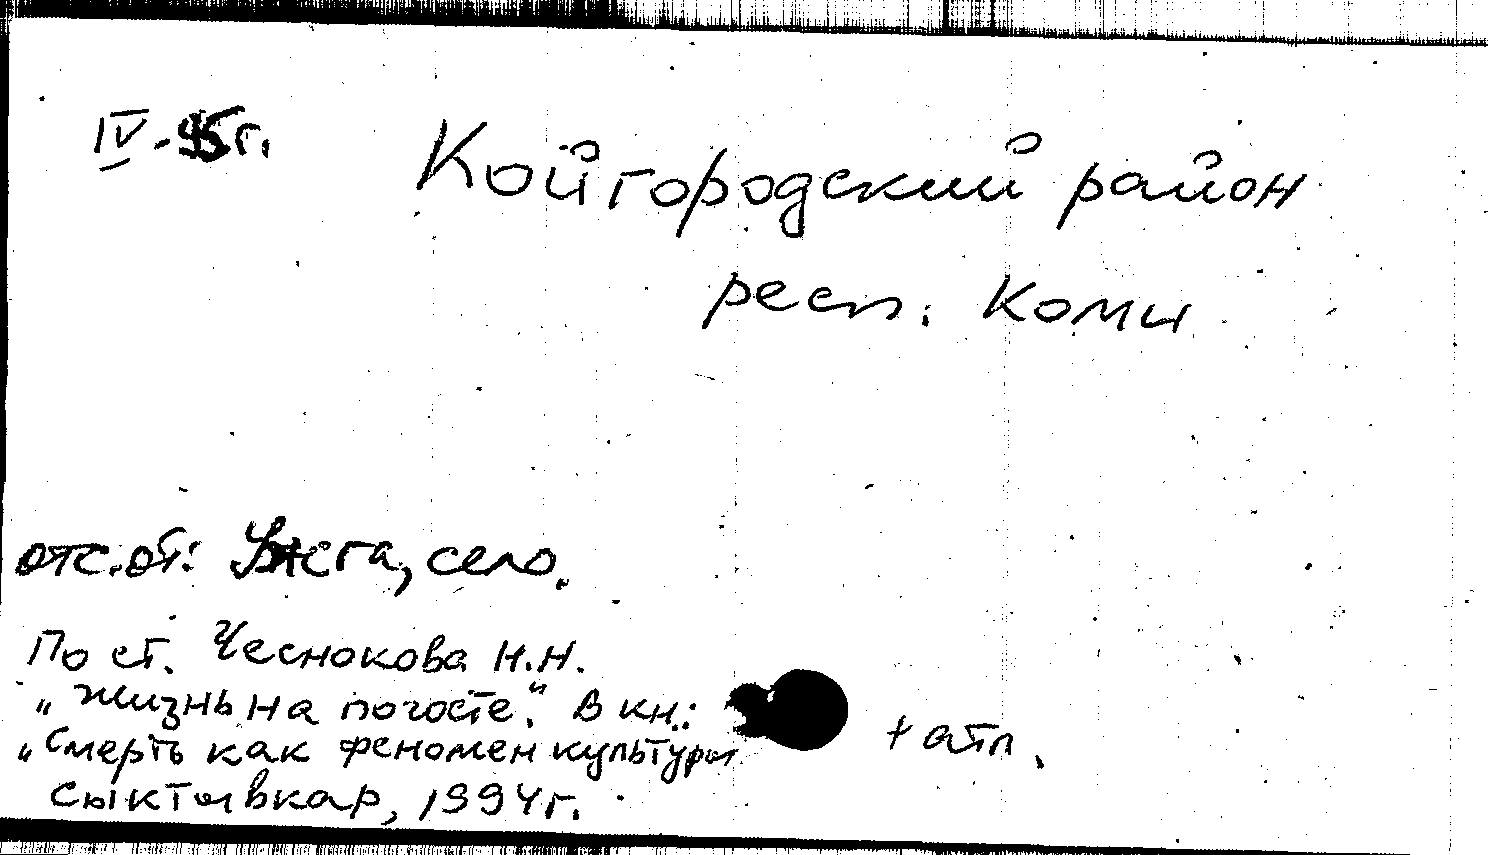 IV-95г.
Койгородский район
респ. Коми
отс. от: Ужга, село.
По ст. Чеснокова Н.Н.
„Жизнь на погосте." В кн.:
„Смерть как феномен культуры
+ атл.
Сыктывкар, 1994г.